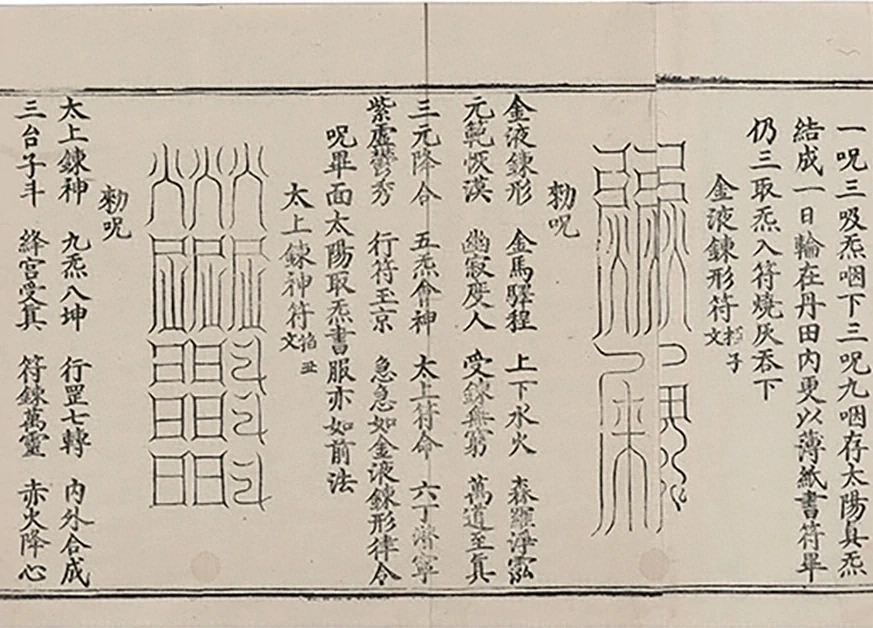 一呪三吸炁咽下三呪九咽存太陽真炁
結成一日輪在丹田內更以薄紙書符畢
仍三取炁入符燒灰吞下
金液鍊形符 掐子文
勑呪
金液鍊形 金馬驛程 上下水火 森羅淨泓
元範恢漠 幽寂度人 受鍊無窮 萬道至真
三元降合 五炁會神 太上符命 六丁潛寧
紫虛欝秀 行符玉京 急急如金液鍊形律令
呪畢面太陽取炁書服亦如前法
太上鍊神符 掐丑文
勑呪
太上鍊神 九炁八坤 行罡七轉 內外合成
三台子斗 絳宮受真 符鍊萬靈 赤火降心